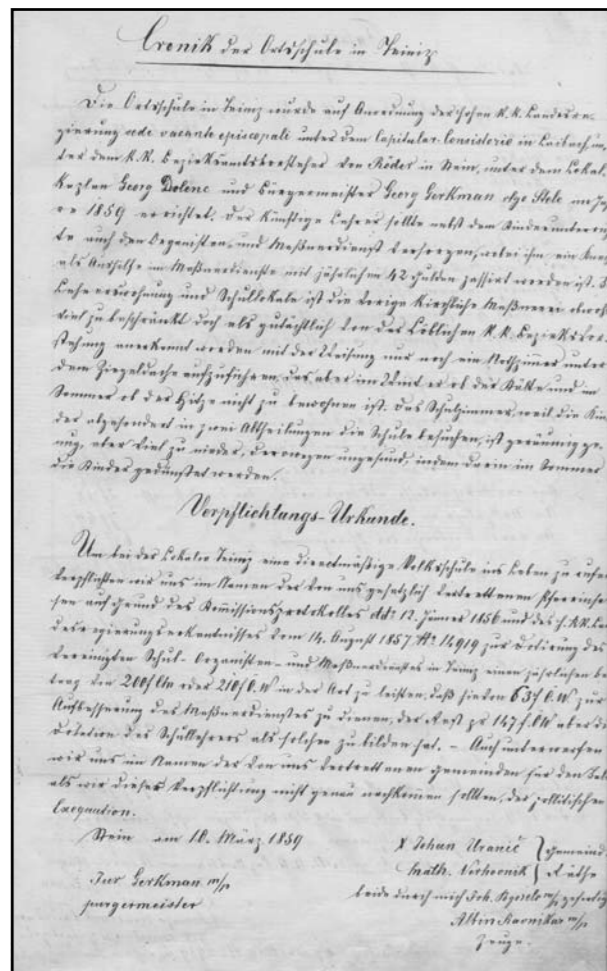 Cronik der Ortsschule in Teiniz
Die Ortsschule in Teiniz wurde auf Anordnung der hohen K. K. Landesre-
gierung sede vacante episcopali unter dem Capitular-Consistorio in Laibach, un-
ter dem K. K. Bezirksamtsvorsteher von Röder in Stein, unter dem Lokal-
Kaplan Georg Dolenc und Bürgermeister Georg Gerkman vlgo Stele im Jah-
re 1859 errichtet. Der künftige Lehrer sollte nebst dem Kinderunterrich-
te auch den Organisten- und Meßnerdienst versorgen, wobei ihm ein Knecht
als Aushilfe im Meßnerdienste mit jährlichen 42 Gulden passirt worden ist.
Lehrerwohnung und Schullokale ist die vorige kirchliche Meßnerei obwohl
viel zu beschränkt doch als gutächtlich von der Löblichen K. K. Bezirksvor-
stehung anerkannt worden mit der Weisung nur noch ein Nothzimmer unter
dem Ziegeldache aufzuführen, das aber im Winter ob der Kälte und im
Sommer ob der Hitze nicht zu bewohnen ist. Das Schulzimmer, weil die Kin-
der abgesondert in zwei Abtheilungen die Schule besuchen, ist geräumig ge-
nug, aber viel zu nieder, deswegen ungesund, indem darin im Sommer
die Kinder gedünstet werden.
Verpflichtungs-Urkunde.
Um bei der Lokalie Teiniz eine directmäßige Volksschule ins Leben zu rufen
verpflichten wir uns im Namen der von uns gesetzlich vertrettenen Pfarrinsa-
ßen auf Grund des Komissionsprotokolles ddo 12. Jänner 1856 und des h. K. K. Lan-
desregierungserkenntnisses vom 14. August 1857 No 14919 zur Dotirung des
vereinigten Schul- Organisten- und Meßnerdienstes in Teiniz einen jährlichen be-
trag von 200 f CM oder 210 f ö. W in der Art zu leisten, daß hievon 63 f ö. W zur
Aufbesserung des Meßnerdienstes zu dienen, der Rest pr 147 f. ö W aber die
Dotation des Schullehrers als solchen zu bilden hat. – Auch unterwerfen
wir uns im Namen der von uns vertrettenen Gemeinden für den Fall
als wir dieser Verpflichtung nicht genau nachkommen sollten, der politischen
Exequution.
Stein am 10. März 1859
X Johan Uranič } Gemeind
Math. Verhovnik } Räthe
Jur Gerkman m/p
purgermeister
beide durch mich Joh. m/p gefertigt
Albin Ravnikar m/p
Zeuge.